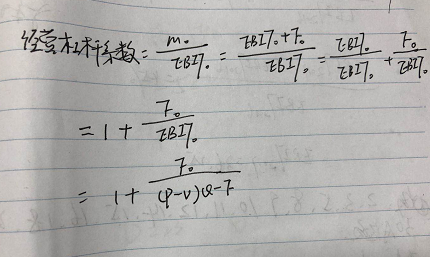 经营杠杆系数 = M₀/EBIT₀ = EBIT₀+F₀/EBIT₀ = EBIT₀/EBIT₀ + F₀/EBIT₀
= 1 + F₀/EBIT₀
= 1 + F₀/(P-V)Q-F